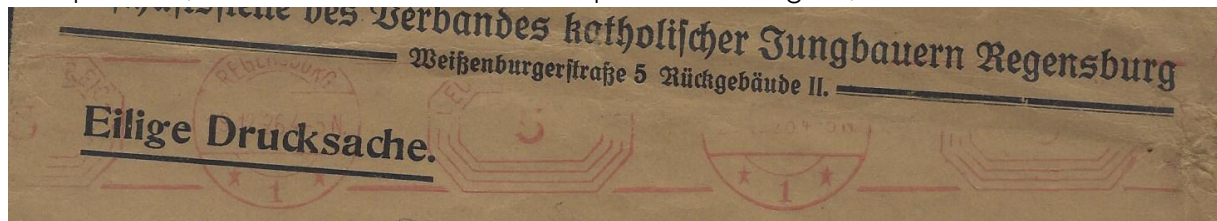 des Verbandes katholischer Jungbauern Regensburg
Weißenburgerstraße 5 Rückgebäude II.
REGENSBURG
Eilige Drucksache.
5
1
1